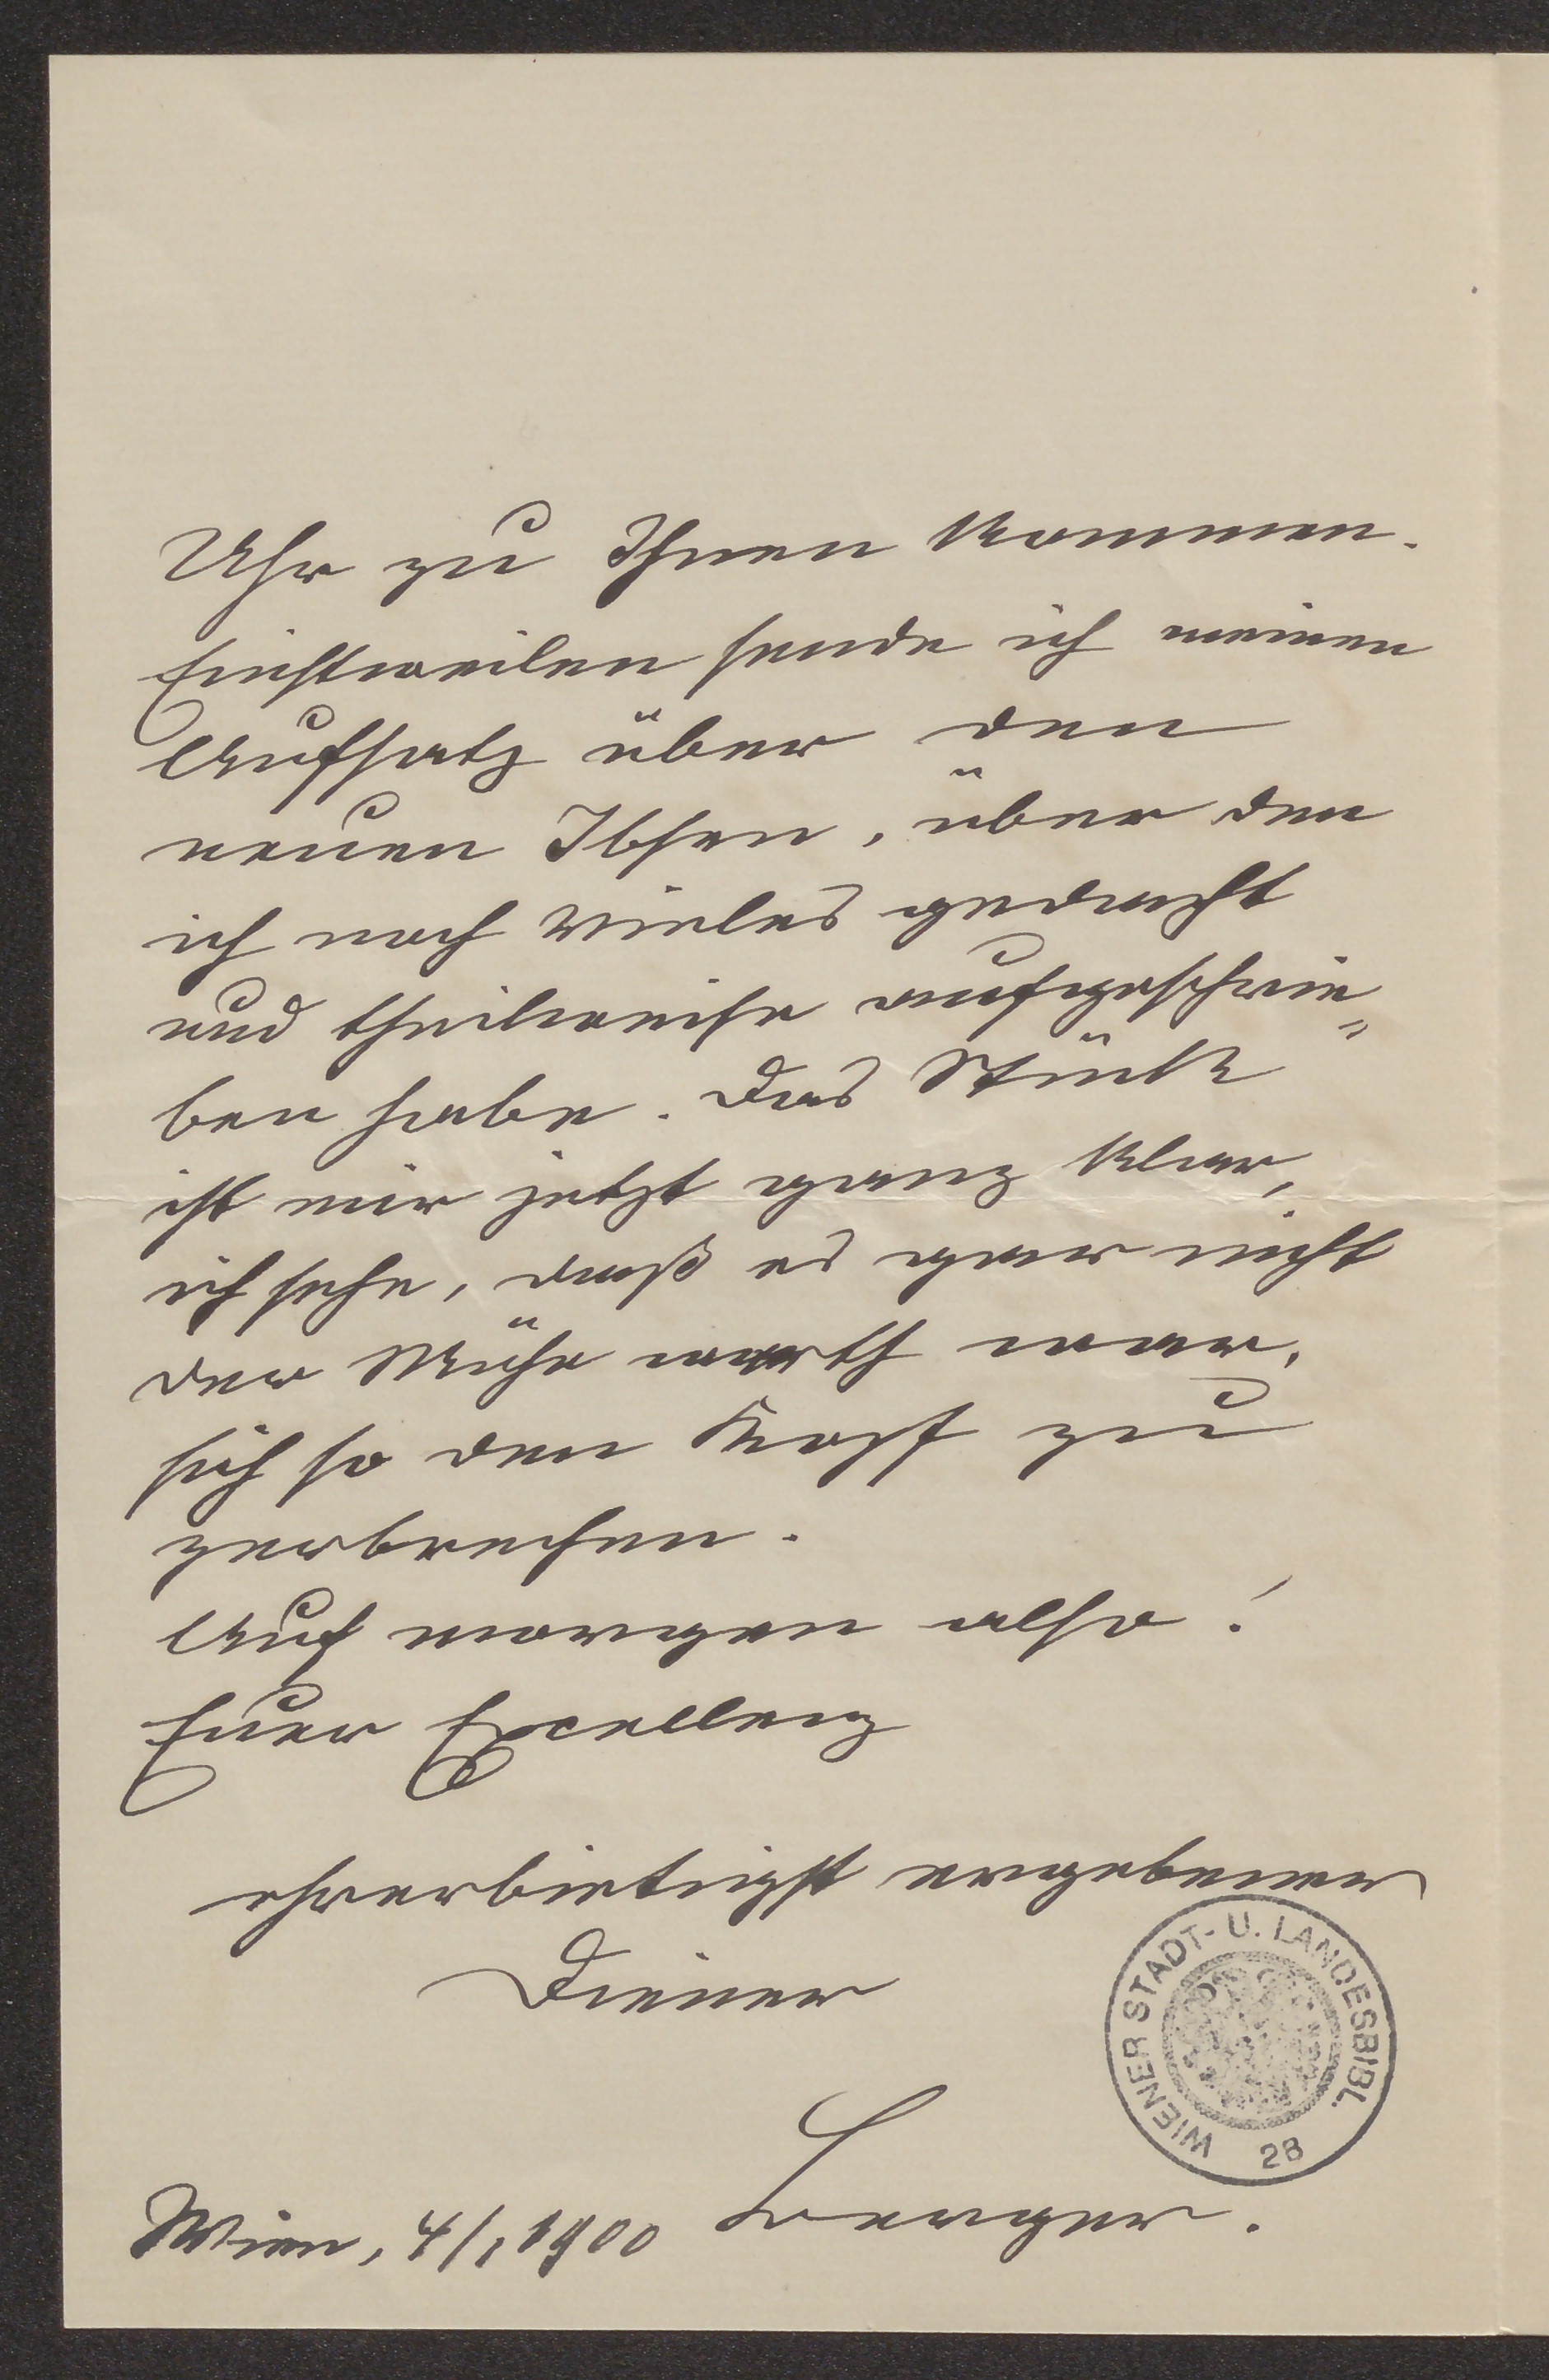 Uhr zu Ihnen kommen.
Einstweilen sende ich meinen
Aufsatz über den
neuen Ibsen, über den
ich noch vieles gedacht
und theilweise aufgeschrie„
ben habe. Das Stück
ist mir jetzt ganz klar,
ich sehe, daß es gar nicht
der Mühe werth war,
sich so den Kopf zu
zerbrechen.
Auf morgen also!
Euer Excellenz
ehrerbietigst ergebener
Diener
Berger.
Wien, 4/1 1900
WIENER STADT- U. LANDESBIBL.
28